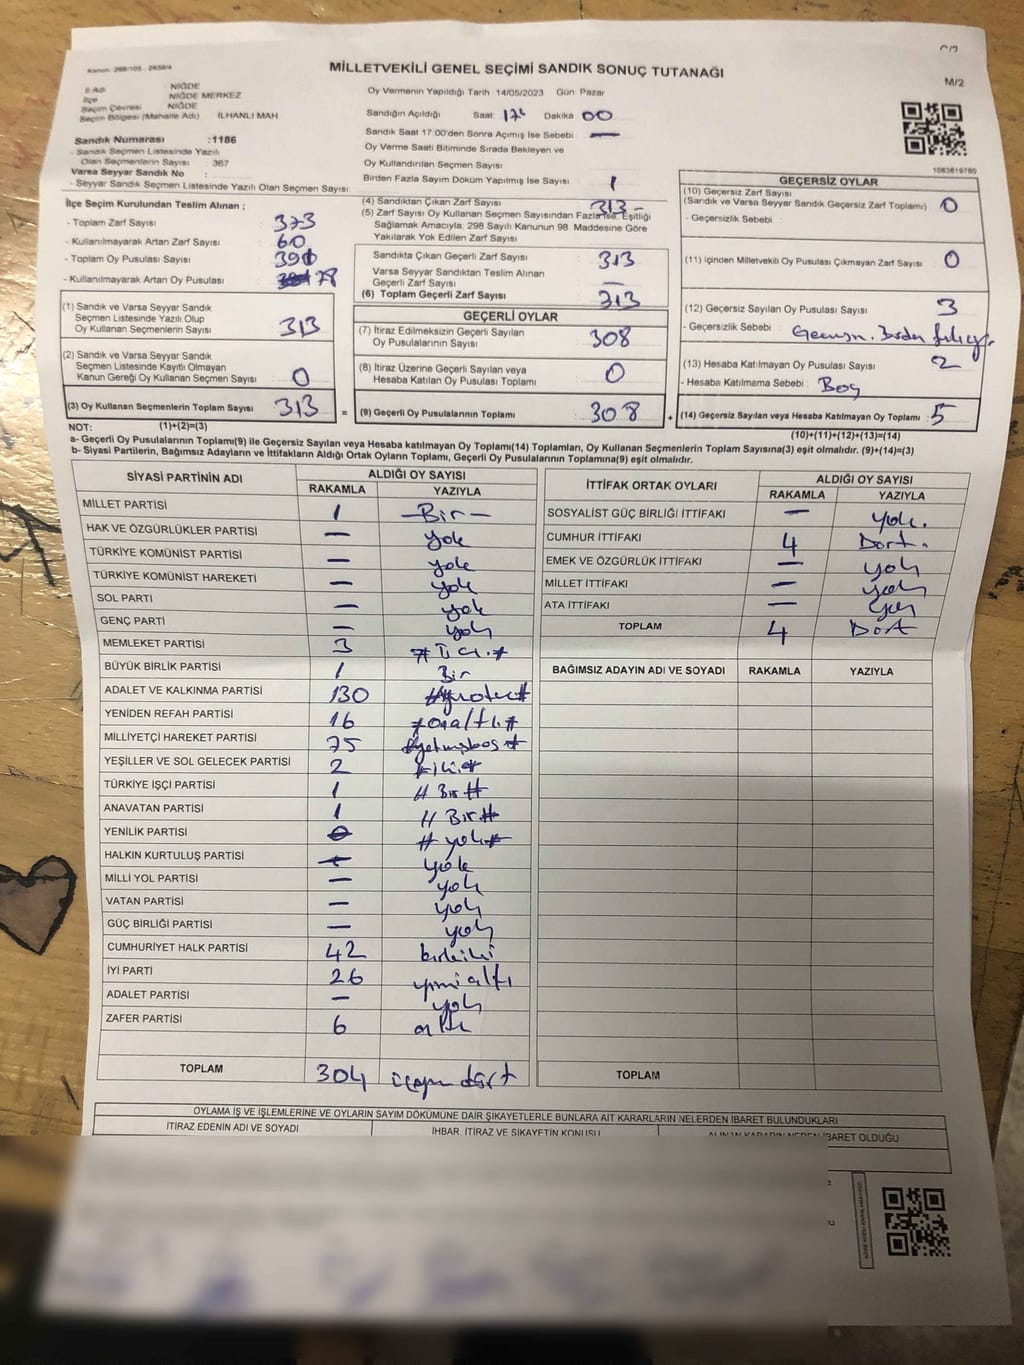 Kanun: 298/105 - 2839/4
MİLLETVEKİLİ GENEL SEÇİMİ SANDIK SONUÇ TUTANAĞI
M/2
İl Adı NİĞDE
İlçe NİĞDE MERKEZ
Seçim Çevresi NİĞDE
Seçim Bölgesi (Mahalle Adı) İLHANLI MAH
Sandık Numarası :1186
- Sandık Seçmen Listesinde Yazılı
Olan Seçmenlerin Sayısı 367
Varsa Seyyar Sandık No
- Seyyar Sandık Seçmen Listesinde Yazılı Olan Seçmen Sayısı:
Oy Vermenin Yapıldığı Tarih 14/05/2023 Gün: Pazar
Sandığın Açıldığı Saat 17 Dakika 00
Sandık Saat 17.00'den Sonra Açımış İse Sebebi —
Oy Verme Saati Bitiminde Sırada Bekleyen ve
Oy Kullandırılan Seçmen Sayısı
Birden Fazla Sayım Döküm Yapılmış İse Sayısı 1
1083619760
İlçe Seçim Kurulundan Teslim Alınan ;
- Toplam Zarf Sayısı 373
- Kullanılmayarak Artan Zarf Sayısı 60
- Toplam Oy Pusulası Sayısı
- Kullanılmayarak Artan Oy Pusulası 78
(1) Sandık ve Varsa Seyyar Sandık
Seçmen Listesinde Yazılı Olup
Oy Kullanan Seçmenlerin Sayısı 313
(2) Sandık ve Varsa Seyyar Sandık
Seçmen Listesinde Kayıtlı Olmayan
Kanun Gereği Oy Kullanan Seçmen Sayısı 0
(3) Oy Kullanan Seçmenlerin Toplam Sayısı 313 =
(1)+(2)=(3)
(4) Sandıktan Çıkan Zarf Sayısı 313-
(5) Zarf Sayısı Oy Kullanan Seçmen Sayısından Fazla ise, Eşitliği
Sağlamak Amacıyla, 298 Sayılı Kanunun 98. Maddesine Göre
Yakılarak Yok Edilen Zarf Sayısı
Sandıkta Çıkan Geçerli Zarf Sayısı 313
Varsa Seyyar Sandıktan Teslim Alınan
Geçerli Zarf Sayısı —
(6) Toplam Geçerli Zarf Sayısı 313
GEÇERLİ OYLAR
(7) İtiraz Edilmeksizin Geçerli Sayılan
Oy Pusulalarının Sayısı 308
(8) İtiraz Üzerine Geçerli Sayılan veya
Hesaba Katılan Oy Pusulası Toplamı 0
(9) Geçerli Oy Pusulalarının Toplamı 308 +
GEÇERSİZ OYLAR
(10) Geçersiz Zarf Sayısı
(Sandık ve Varsa Seyyar Sandık Geçersiz Zarf Toplamı) 0
- Geçersizlik Sebebi :
(11) İçinden Milletvekili Oy Pusulası Çıkmayan Zarf Sayısı 0
(12) Geçersiz Sayılan Oy Pusulası Sayısı 3
- Geçersizlik Sebebi :
(13) Hesaba Katılmayan Oy Pusulası Sayısı 2
- Hesaba Katılmama Sebebi : Boş
(14) Geçersiz Sayılan veya Hesaba Katılmayan Oy Toplamı : 5
(10)+(11)+(12)+(13)=(14)
NOT:
a- Geçerli Oy Pusulalarının Toplamı(9) ile Geçersiz Sayılan veya Hesaba katılmayan Oy Toplamı(14) Toplamları, Oy Kullanan Seçmenlerin Toplam Sayısına(3) eşit olmalıdır. (9)+(14)=(3)
b- Siyasi Partilerin, Bağımsız Adayların ve İttifakların Aldığı Ortak Oyların Toplamı, Geçerli Oy Pusulalarının Toplamına(9) eşit olmalıdır.
SİYASİ PARTİNİN ADI ALDIĞI OY SAYISI
RAKAMLA YAZIYLA
MİLLET PARTİSİ 1 —Bir—
HAK VE ÖZGÜRLÜKLER PARTİSİ — yok
TÜRKİYE KOMÜNİST PARTİSİ — yok
TÜRKİYE KOMÜNİST HAREKETİ — yok
SOL PARTİ — yok
GENÇ PARTİ — yok
MEMLEKET PARTİSİ 3 #Üç.#
BÜYÜK BİRLİK PARTİSİ 1 Bir
ADALET VE KALKINMA PARTİSİ 130
YENİDEN REFAH PARTİSİ 16 #onaltı#
MİLLİYETÇİ HAREKET PARTİSİ 75 #yetmişbeş#
YEŞİLLER VE SOL GELECEK PARTİSİ 2 #iki#
TÜRKİYE İŞÇİ PARTİSİ 1 # Bir #
ANAVATAN PARTİSİ 1 # Bir #
YENİLİK PARTİSİ # yok #
HALKIN KURTULUŞ PARTİSİ — yok
MİLLİ YOL PARTİSİ — yok
VATAN PARTİSİ — yok
GÜÇ BİRLİĞİ PARTİSİ — yok
CUMHURİYET HALK PARTİSİ 42 kırkiki
İYİ PARTİ 26 yirmialtı
ADALET PARTİSİ — yok
ZAFER PARTİSİ 6 altı
TOPLAM 304 üçyüz dört
İTTİFAK ORTAK OYLARI ALDIĞI OY SAYISI
RAKAMLA YAZIYLA
SOSYALİST GÜÇ BİRLİĞİ İTTİFAKI — yok.
CUMHUR İTTİFAKI 4 Dört.
EMEK VE ÖZGÜRLÜK İTTİFAKI — yok
MİLLET İTTİFAKI — yok
ATA İTTİFAKI — yok
TOPLAM 4 Dört
BAĞIMSIZ ADAYIN ADI VE SOYADI RAKAMLA YAZIYLA
TOPLAM
OYLAMA İŞ VE İŞLEMLERİNE VE OYLARIN SAYIM DÖKÜMÜNE DAİR ŞİKAYETLERLE BUNLARA AİT KARARLARIN NELERDEN İBARET BULUNDUKLARI
İTİRAZ EDENİN ADI VE SOYADI İHBAR, İTİRAZ VE ŞİKAYETİN KONUSU ALINAN KARARIN NEDEN İBARET OLDUĞU